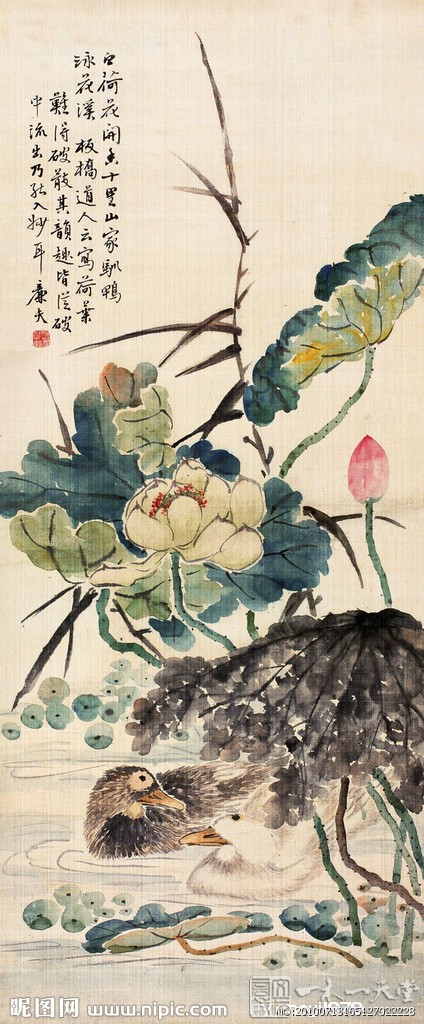 白荷花开香十里山家驯鸭
泳花溪 板桥道人云写荷叶
难得破散其韵趣皆从破
中流出乃能入妙耳 廉夫
昵图网 www.nipic.com
NO:20100713165127022228